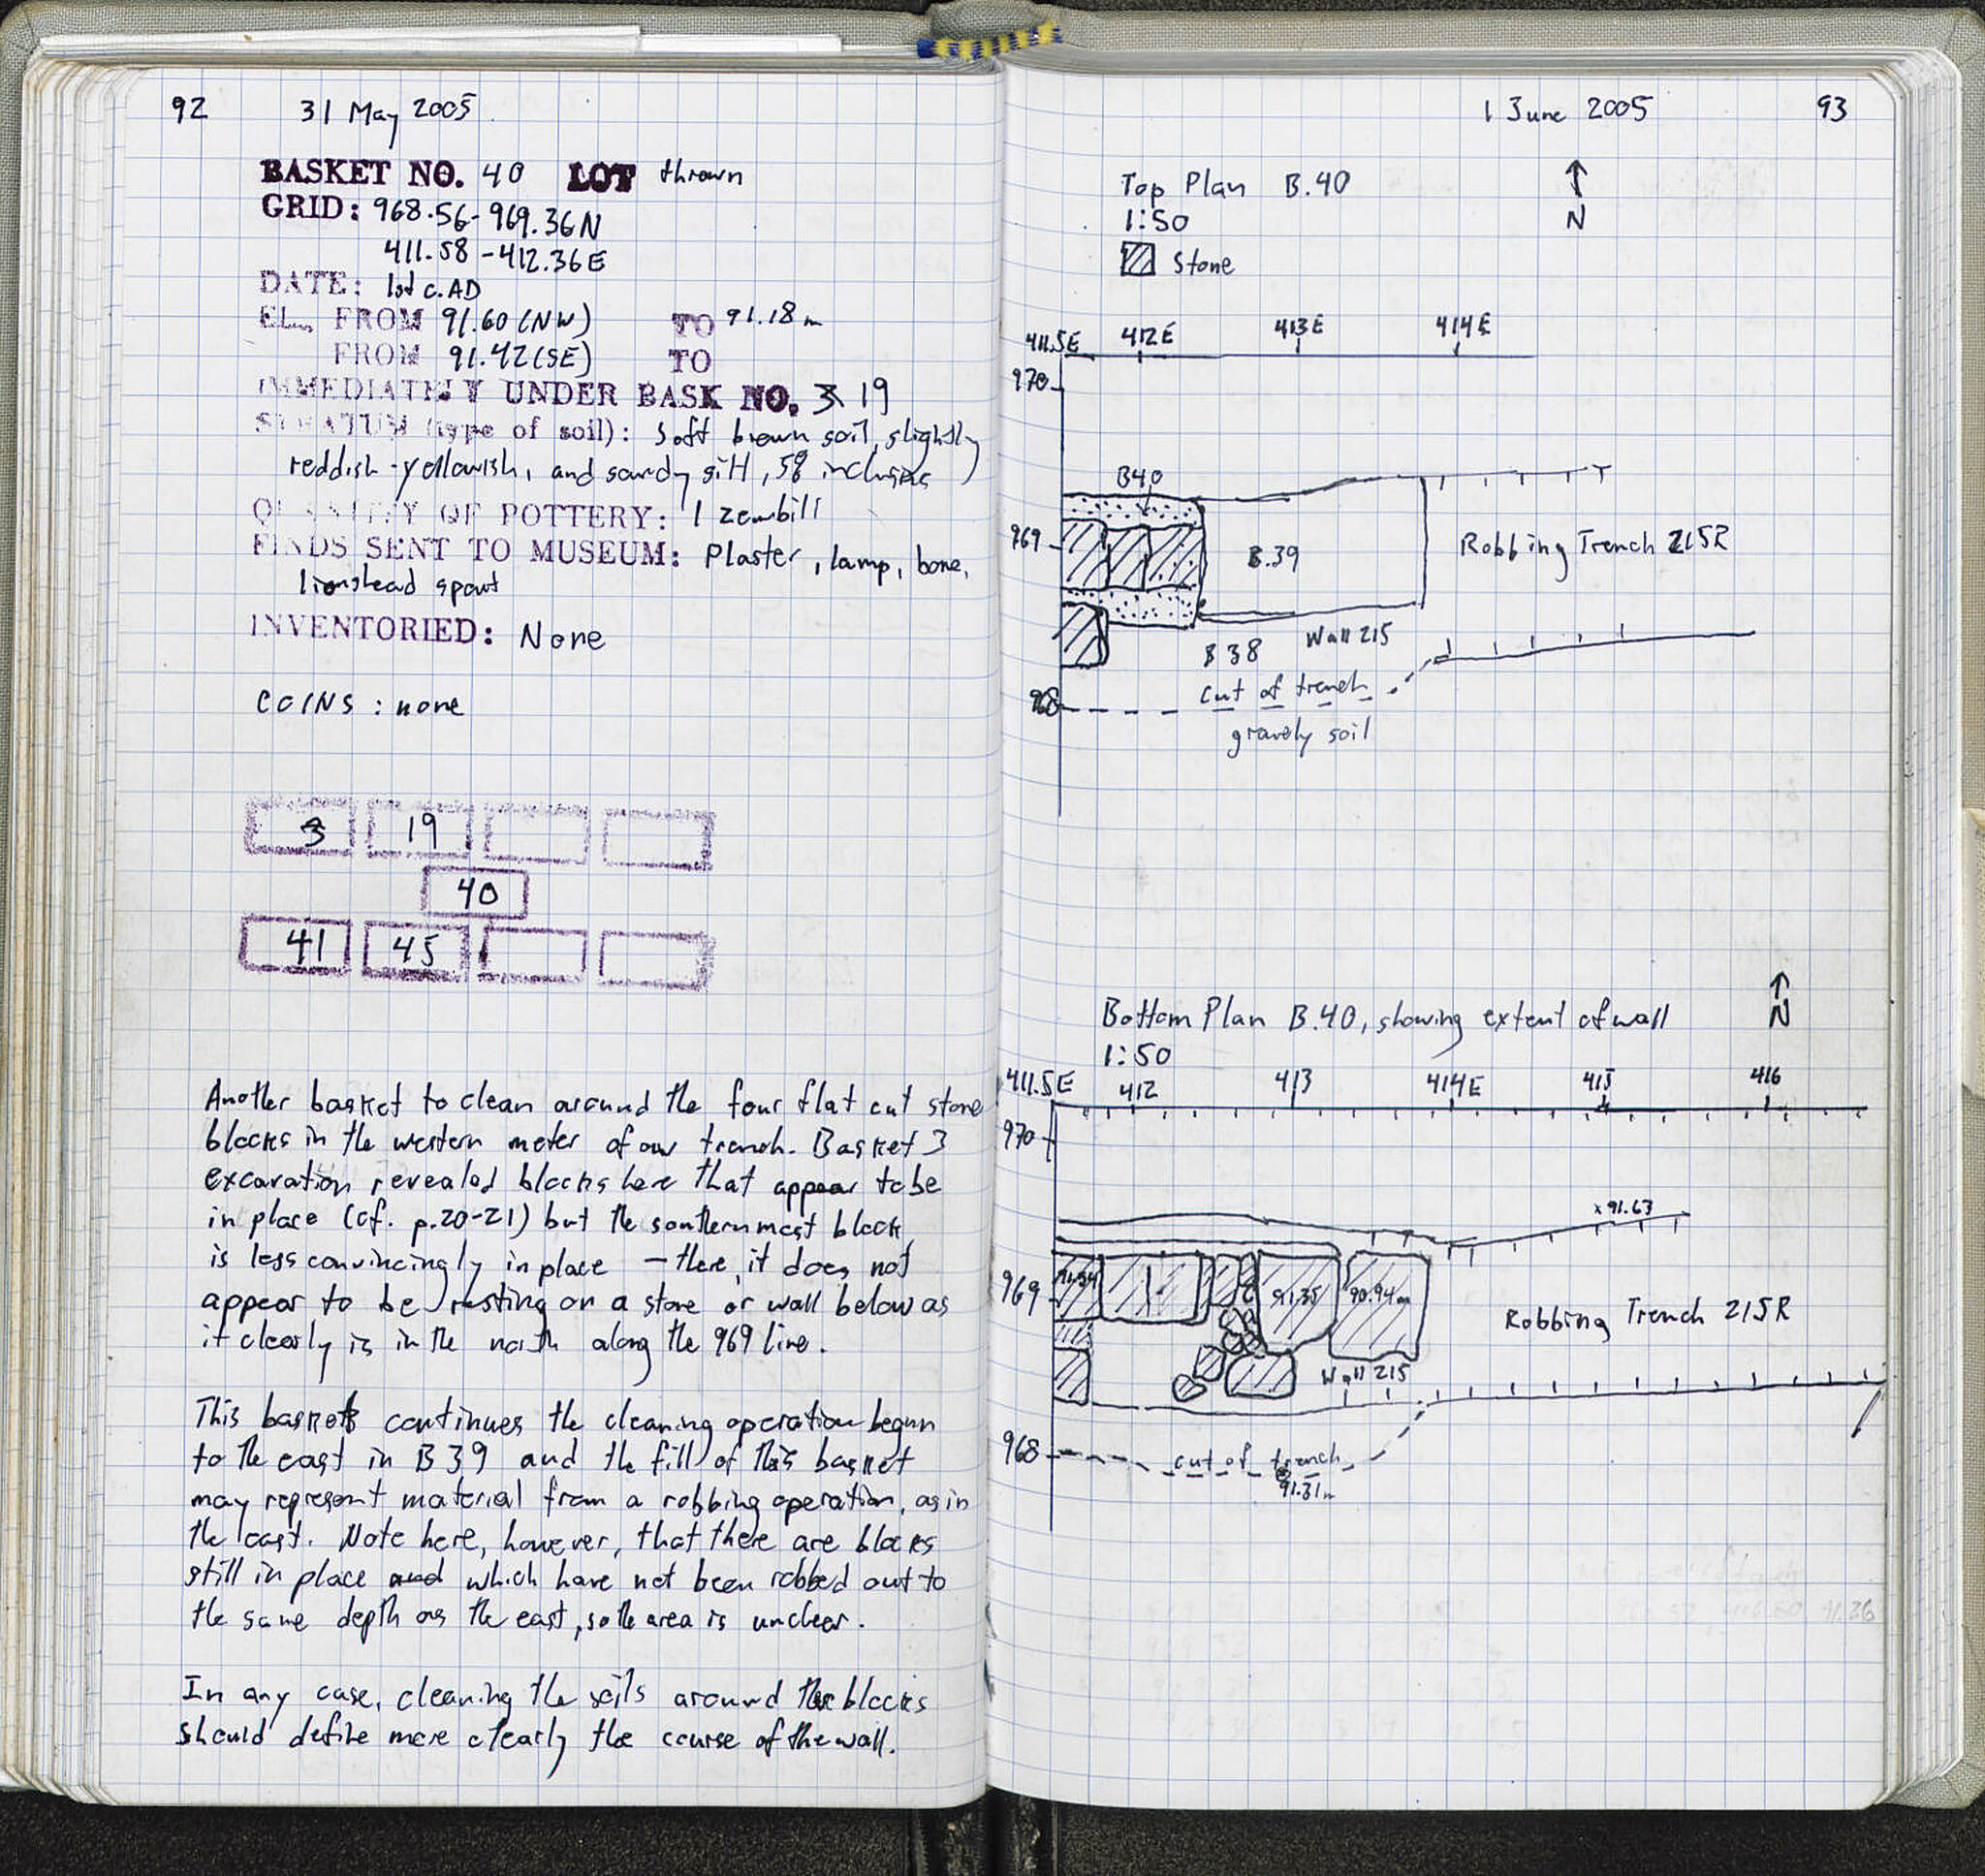 92 31 May 2005
BASKET NO. 40 LOT thrown
GRID: 968.56-969.36N
411.58-412.36E
DATE: 1st c. AD
EL. FROM 91.60 (NW) TO 91.18m
FROM 91.42 (SE) TO
IMMEDIATELY UNDER BASK NO. 3 19
STRATUM (type of soil): Soft brown soil, slightly
reddish-yellowish, and sandy silt, 5% inclusions
QUANTITY OF POTTERY: 1 zembili
FINDS SENT TO MUSEUM: Plaster, lamp, bone,
lionshead spout
INVENTORIED: None
COINS: none
3 19
40
41 45
Another basket to clean around the four flat cut stone
blocks in the western meter of our trench. Basket 3
excavation revealed blocks here that appear to be
in place (cf. p.20-21) but the southernmost block
is less convincingly in place - there, it does not
appear to be resting on a stone or wall below as
it clearly is in the north along the 969 line.
This basket continues the cleaning operation begun
to the east in B39 and the fill of this basket
may represent material from a robbing operation, as in
the east. Note here, however, that there are blocks
still in place and which have not been robbed out to
the same depth as the east, so the area is unclear.
In any case, cleaning the soils around the blocks
should define more clearly the course of the wall.
1 June 2005 93
Top Plan B.40
1:50
N
Stone
411.5E 412E 413E 414E
970
B40
969
B.39
Robbing Trench 215R
B38 Wall 215
cut of trench
968
gravely soil
Bottom Plan B.40, showing extent of wall
N
1:50
411.5E 412 413 414E 415 416
970
x 91.63
969
91.35 90.94m
Robbing Trench 215R
Wall 215
968
cut of trench
91.31m